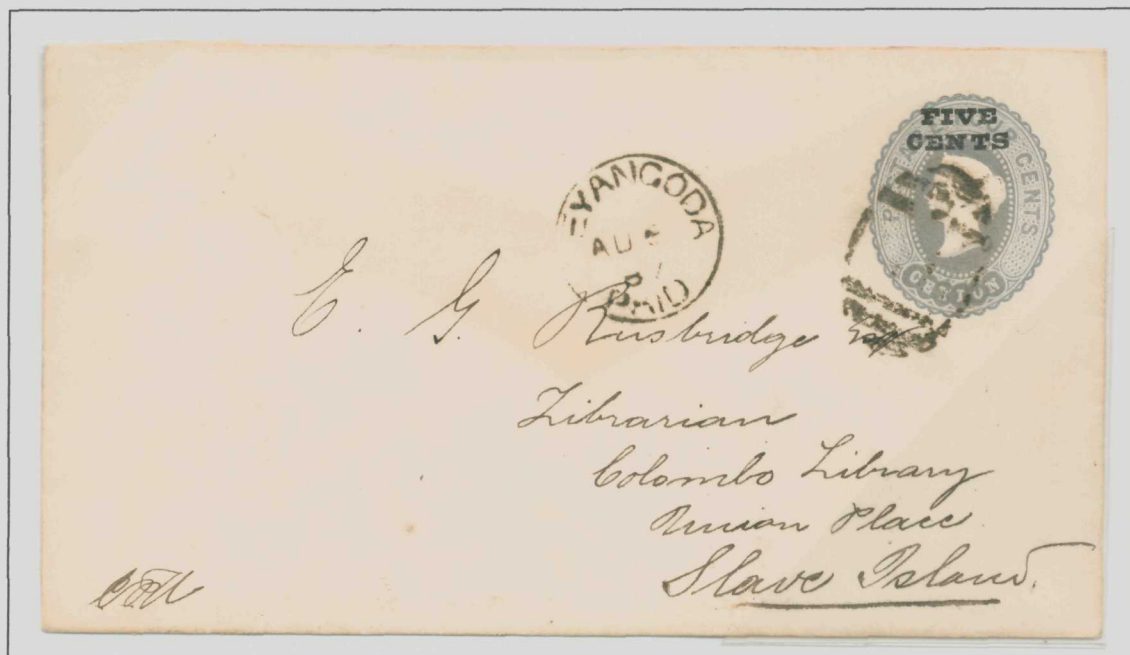 FIVE
CENTS
POSTAGE FOUR CENTS
CEYLON
EYANGODA
AU 5
PAID
E. G. Rusbridge Esq
Librarian
Colombo Library
Union Place
Slave Island.